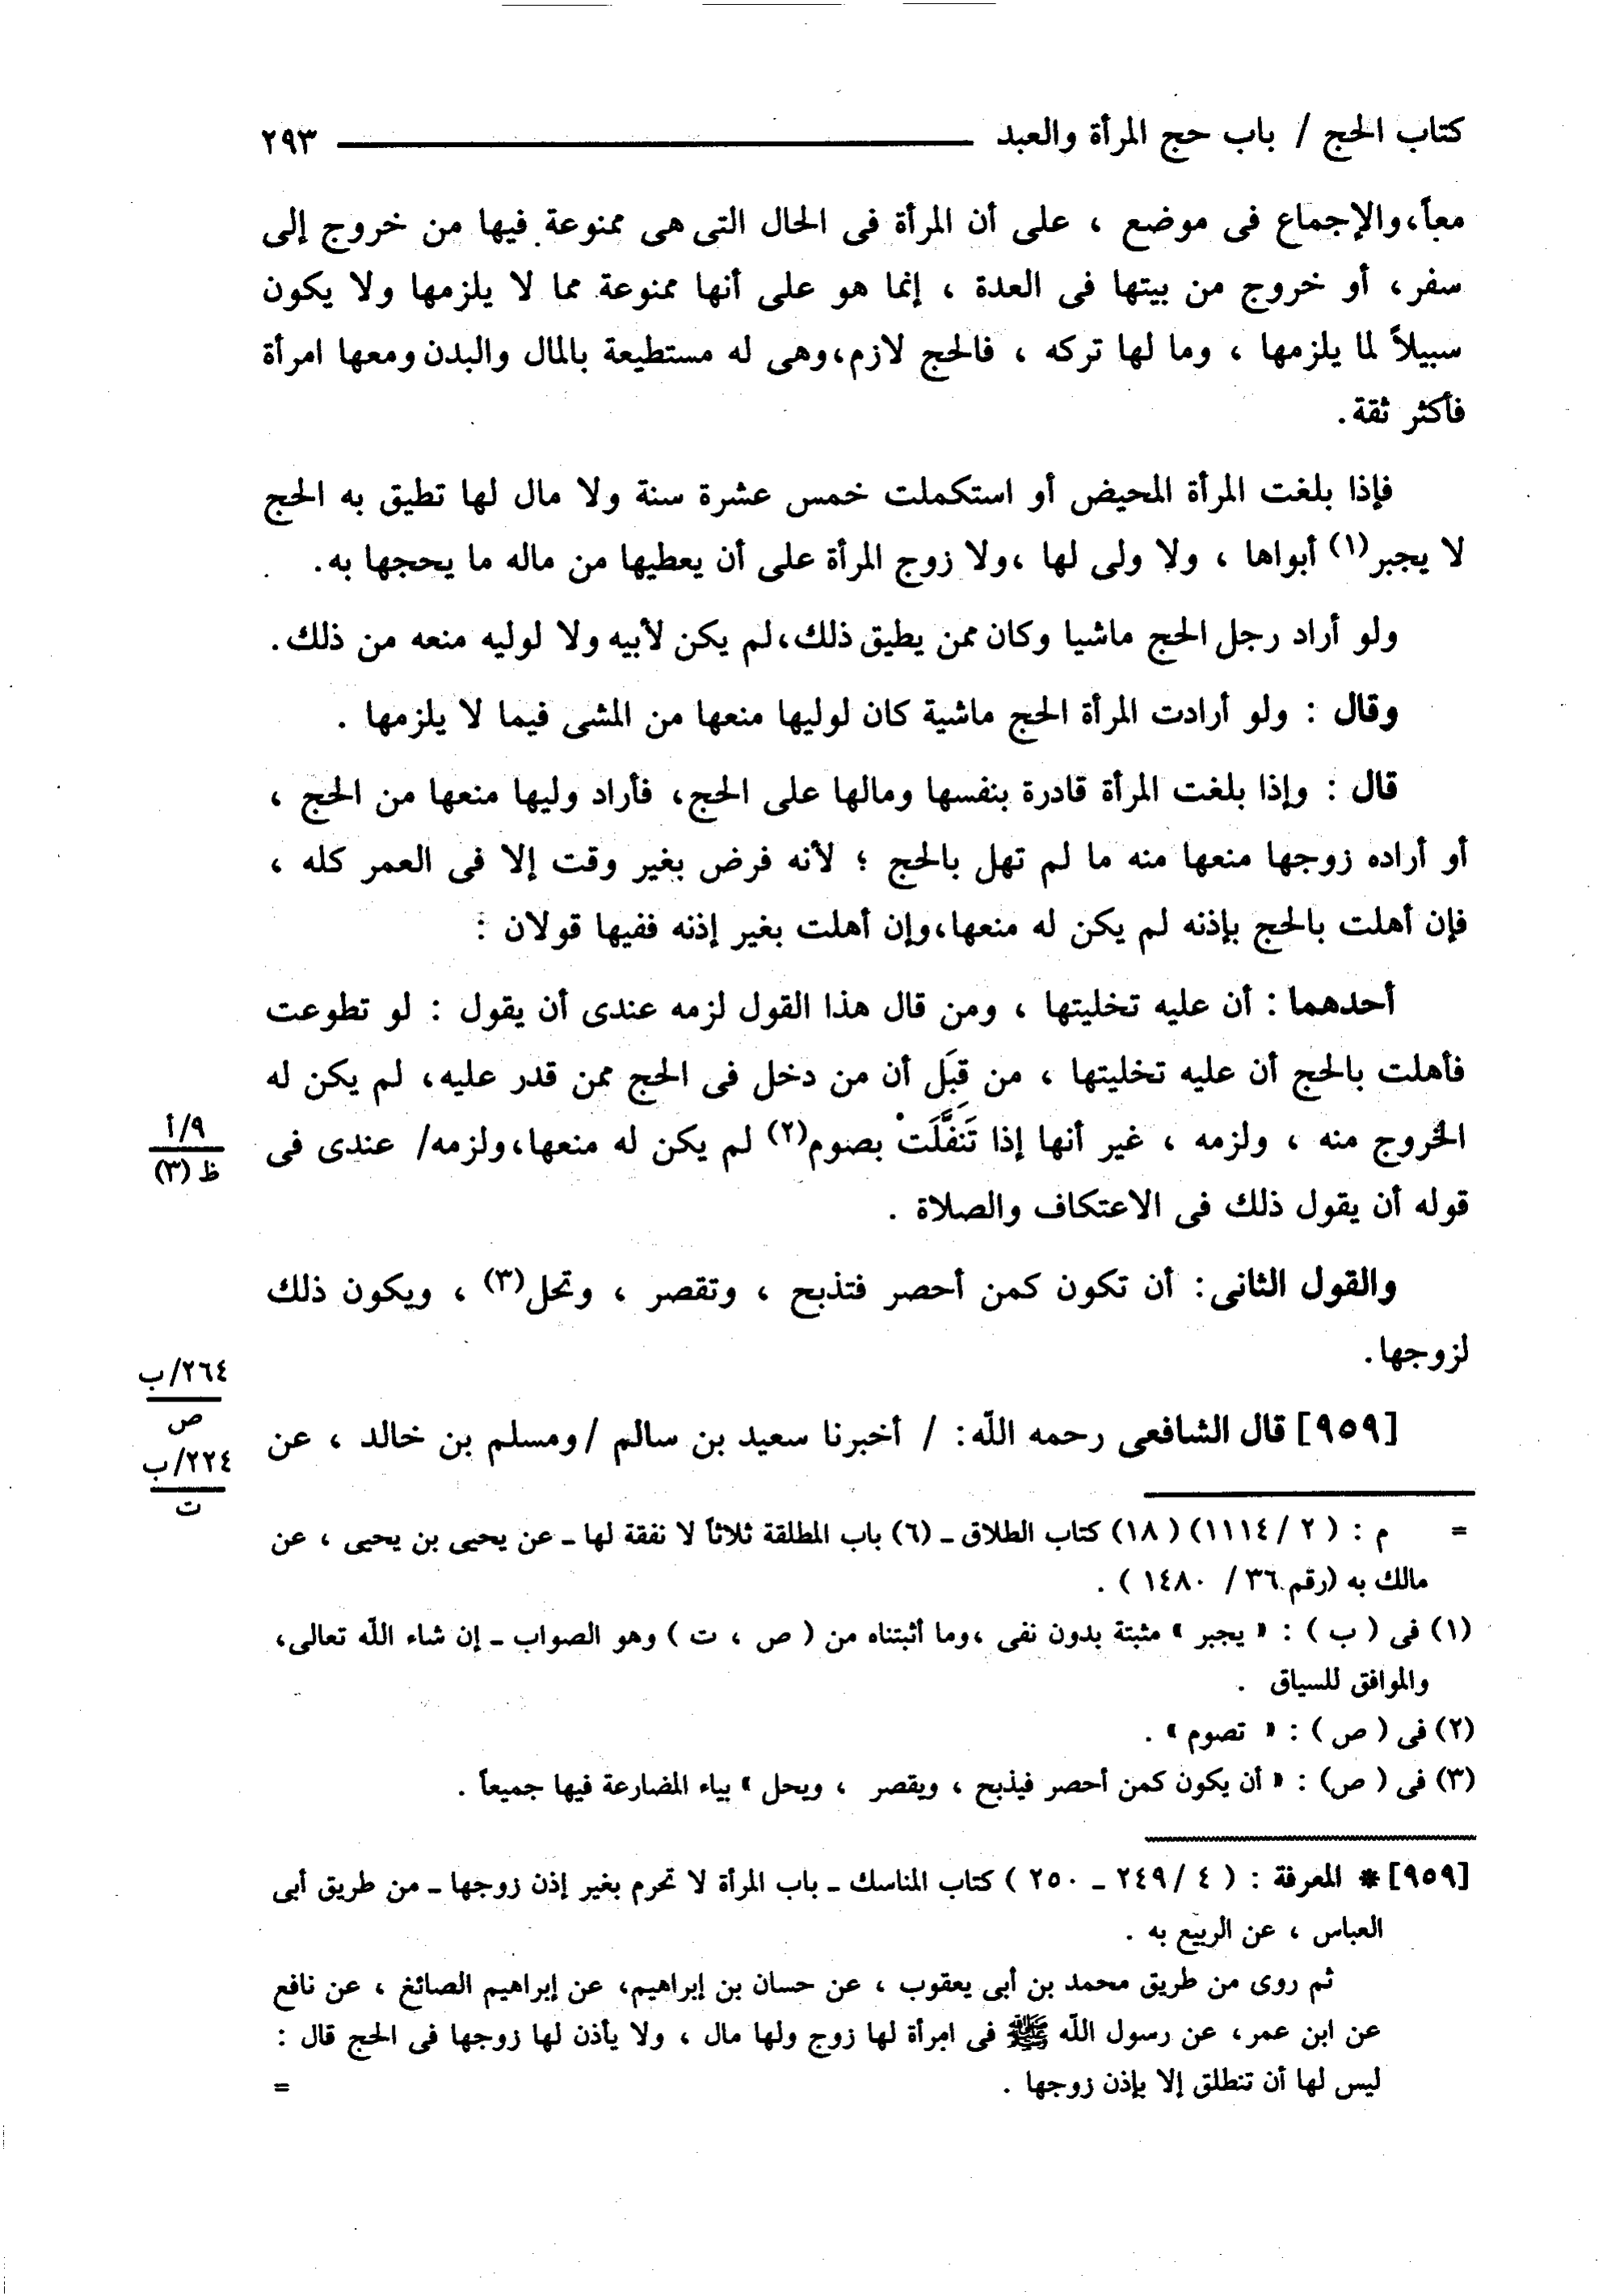 كتاب الحج / باب حج المرأة والعبد ٢٩٣
معاً،والإجماع فى موضع ، على أن المرأة فى الحال التى هى ممنوعة فيها من خروج إلى
سفر، أو خروج من بيتها فى العدة ، إنما هو على أنها ممنوعة مما لا يلزمها ولا يكون
سبيلاً لما يلزمها ، وما لها تركه ، فالحج لازم،وهى له مستطيعة بالمال والبدن ومعها امرأة
فأكثر ثقة.
فإذا بلغت المرأة المحيض أو استكملت خمس عشرة سنة ولا مال لها تطيق به الحج
لا يجبر(١) أبواها ، ولا ولى لها ،ولا زوج المرأة على أن يعطيها من ماله ما يحجها به.
ولو أراد رجل الحج ماشيا وكان ممن يطيق ذلك،لم يكن لأبيه ولا لوليه منعه من ذلك.
وقال : ولو أرادت المرأة الحج ماشية كان لوليها منعها من المشى فيما لا يلزمها .
قال : وإذا بلغت المرأة قادرة بنفسها ومالها على الحج، فأراد وليها منعها من الحج ،
أو أراده زوجها منعها منه ما لم تهل بالحج ؛ لأنه فرض بغير وقت إلا فى العمر كله ،
فإن أهلت بالحج بإذنه لم يكن له منعها،وإن أهلت بغير إذنه ففيها قولان :
أحدهما : أن عليه تخليتها ، ومن قال هذا القول لزمه عندى أن يقول : لو تطوعت
فأهلت بالحج أن عليه تخليتها ، من قِبَل أن من دخل فى الحج ممن قدر عليه، لم يكن له
الخروج منه ، ولزمه ، غير أنها إذا تَنَفَّلَتْ بصوم(٢) لم يكن له منعها،ولزمه/ عندى فى
٩/أ
ظ (٣)
قوله أن يقول ذلك فى الاعتكاف والصلاة .
والقول الثانى: أن تكون كمن أحصر فتذبح ، وتقصر ، وتحل(٣) ، ويكون ذلك
لزوجها.
٢٦٤/ب
ص
[٩٥٩] قال الشافعى رحمه الله: / أخبرنا سعيد بن سالم /ومسلم بن خالد ، عن
٢٢٤/ب
ت
= م : ( ٢ /١١١٤) (١٨ ) كتاب الطلاق ـ (٦) باب المطلقة ثلاثاً لا نفقة لها ـ عن يحيى بن يحيى ، عن
مالك به (رقم ٣٦ / ١٤٨٠ ) .
(١) فى ( ب ) : « يجبر » مثبتة بدون نفى ،وما أثبتناه من ( ص ، ت ) وهو الصواب ـ إن شاء الله تعالى،
والموافق للسياق .
(٢) فى ( ص ) : « تصوم » .
(٣) فى ( ص) : « أن يكون كمن أحصر فيذبح ، ويقصر ، ويحل » بياء المضارعة فيها جميعاً .
[٩٥٩] * المعرفة : ( ٤ /٢٤٩ ـ ٢٥٠ ) كتاب المناسك ـ باب المرأة لا تحرم بغير إذن زوجها ـ من طريق أبى
العباس ، عن الربيع به .
ثم روى من طريق محمد بن أبى يعقوب ، عن حسان بن إبراهيم، عن إبراهيم الصائغ ، عن نافع
عن ابن عمر، عن رسول الله ﷺ فى امرأة لها زوج ولها مال ، ولا يأذن لها زوجها فى الحج قال :
ليس لها أن تنطلق إلا بإذن زوجها . =